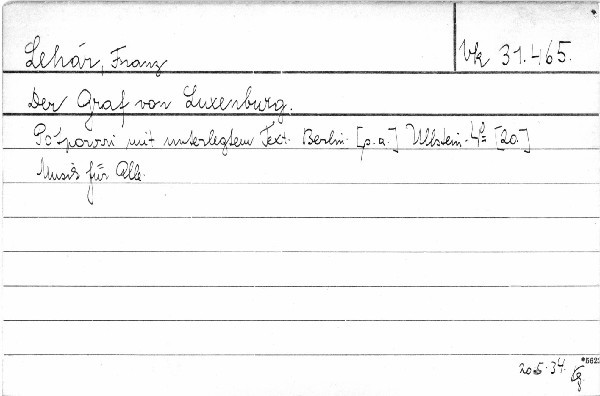 Lehár, Franz
Vk 31.465.
Der Graf von Luxenburg.
Potpourri mit unterlegtem Text. Berlin. [s.a.] Ullstein. 4º [20.]
Musik für Alle.
20.5.34.